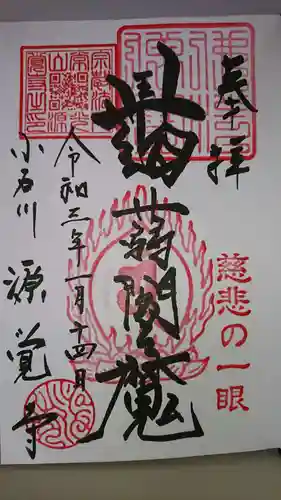 奉拝
慈悲の一眼
蒟蒻閻魔
令和三年一月十四日
小石川
源覚寺